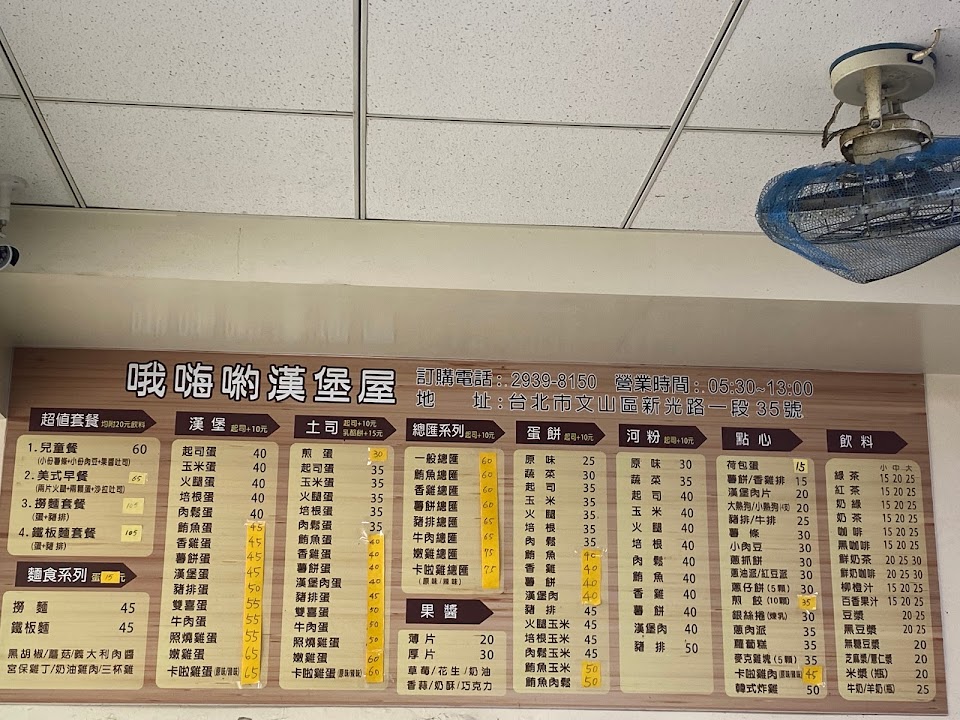 哦嗨喲漢堡屋
訂購電話:.2939-8150 營業時間:.05:30~13:00
地 址:台北市文山區新光路一段35號
超值套餐 均附20元飲料
1.兒童餐 60
(小份薯條+小份肉豆+果醬吐司)
2.美式早餐 65
(兩片火腿+兩顆蛋+沙拉吐司)
3.撈麵套餐 105
(蛋+豬排)
4.鐵板麵套餐 105
(蛋+豬排)
麵食系列 蛋15元
撈麵 45
鐵板麵 45
黑胡椒/蘑菇/義大利肉醬
宮保雞丁/奶油雞肉/三杯雞
漢堡 起司+10元
起司蛋 40
玉米蛋 40
火腿蛋 40
培根蛋 40
肉鬆蛋 40
鮪魚蛋 45
香雞蛋 45
薯餅蛋 45
漢堡蛋 45
豬排蛋 50
雙嘉蛋 55
牛肉蛋 55
照燒雞蛋 55
嫩雞蛋 65
卡啦雞蛋(原味/辣味) 65
土司 起司+10元
乳酪餅+15元
煎蛋 30
起司蛋 35
玉米蛋 35
火腿蛋 35
培根蛋 35
肉鬆蛋 35
鮪魚蛋 40
香雞蛋 40
薯餅蛋 40
漢堡肉蛋 40
豬排蛋 45
雙嘉蛋 50
牛肉蛋 50
照燒雞蛋 50
嫩雞蛋 60
卡啦雞蛋(原味/辣味) 60
總匯系列 起司+10元
一般總匯 60
鮪魚總匯 60
香雞總匯 60
薯餅總匯 60
豬排總匯 65
牛肉總匯 65
嫩雞總匯 75
卡啦雞總匯 75
(原味/辣味)
果醬
薄片 20
厚片 30
草莓/花生/奶油
香蒜/奶酥/巧克力
蛋餅 起司+10元
原味 25
蔬菜 30
起司 35
玉米 35
火腿 35
培根 35
肉鬆 35
鮪魚 40
香雞 40
薯餅 40
漢堡肉 40
豬排 45
火腿玉米 45
培根玉米 45
肉鬆玉米 45
鮪魚玉米 50
鮪魚肉鬆 50
河粉 起司+10元
原味 30
蔬菜 35
起司 40
玉米 40
火腿 40
培根 40
肉鬆 40
鮪魚 40
香雞 40
薯餅 40
漢堡肉 40
豬排 50
點心
荷包蛋 15
薯餅/香雞排 15
漢堡肉片 20
大熱狗/小熱狗 20
豬排/牛排 25
薯條 30
小肉豆 30
蔥抓餅 30
蔥油派/紅豆派 30
蔥仔餅(5顆) 30
煎餃(10顆) 35
銀絲捲(煉乳) 30
蔥肉派 35
蘿蔔糕 35
麥克雞塊(5顆) 35
卡啦雞肉(原味/辣味) 45
韓式炸雞 50
飲料
小 中 大
綠茶 15 20 25
紅茶 15 20 25
奶綠 15 20 25
奶茶 15 20 25
咖啡 15 20 25
黑咖啡 15 20 25
鮮奶茶 20 25 30
鮮奶咖啡 20 25 30
柳橙汁 15 20 25
百香果汁 15 20 25
豆漿 20 25
黑豆漿 20 25
無糖豆漿 20
芝麻漿/薏仁漿 20
米漿(瓶) 20
牛奶/羊奶(瓶) 25